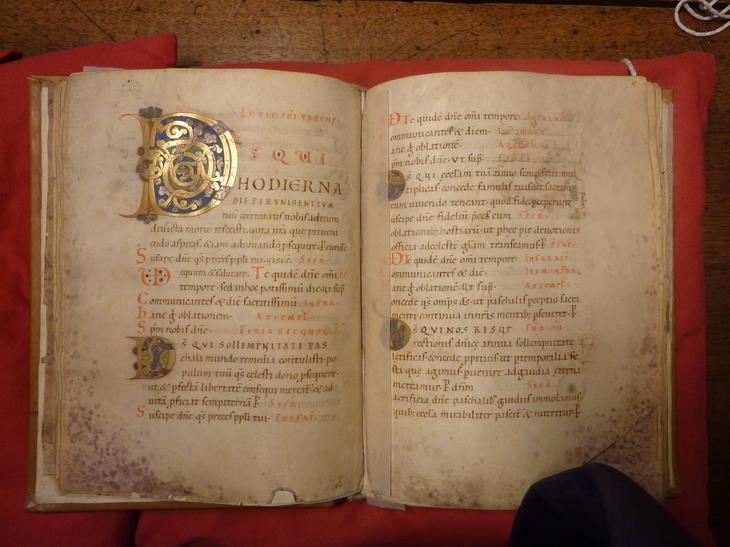 IN DIE SCI PASCHE
D̄S QUI
HODIERNA
DIE PER UNIGENITUM
tuum aeternitatis nobis aditum
devicta morte reserasti. vota nra que preveni
endo aspiras. etiam adiuvando psequere. P eunde.
Suscipe dne qs preces ppli tui. SECR
equum & salutare. Te quide dne omi
tempore. sed in hoc potissimu die
Communicantes & die sacratissimu. INFRA
hanc g oblationem. AD COMPL
Spm nobis dne. FERIA SECUNDA
D̄S QUI SOLLEMPNITATE PAS
chali mundo remedia contulisti. po
pulum tuu qs celesti dono psequere.
ut & pfecta libertate consequi mereat & ad
vita pficiat sempiterna. P SECR
Suscipe dne qs preces ppli tui. PREFAT
Te quide dne omi tempore.
ommunicantes & diem.
anc g oblatione.
pm nobis dne. Ut sup. FERIA III
D̄s q ecclam tua novo semp fetu mul
tiplicas concede famulis tuis ut sacram
tum vivendo teneant quod fide pceperunt
uscipe dne fidelium pces cum SECR
oblationib hostiaru. ut p hec pie devotionis
officia ad celeste glam transeamus. P PREFAT
Te quide dne omi tempore
ommunicantes & die
anc g oblatione. Ut sup.
oncede qs omps ds. ut paschalis pceptio sacra
menti continua in nris mentib; pseveret. P
D̄S QUI NOS RESUR FER IIII
rectionis dnice annua sollempnitate
letificas concede ppitius ut p temporalia fe
sta que agimus pvenire ad gaudia eterna
mereamur. P dnm SECR
acrificia dne paschalib; gaudiis immolamus
quib; eccla mirabiliter pascit & nutritur. P